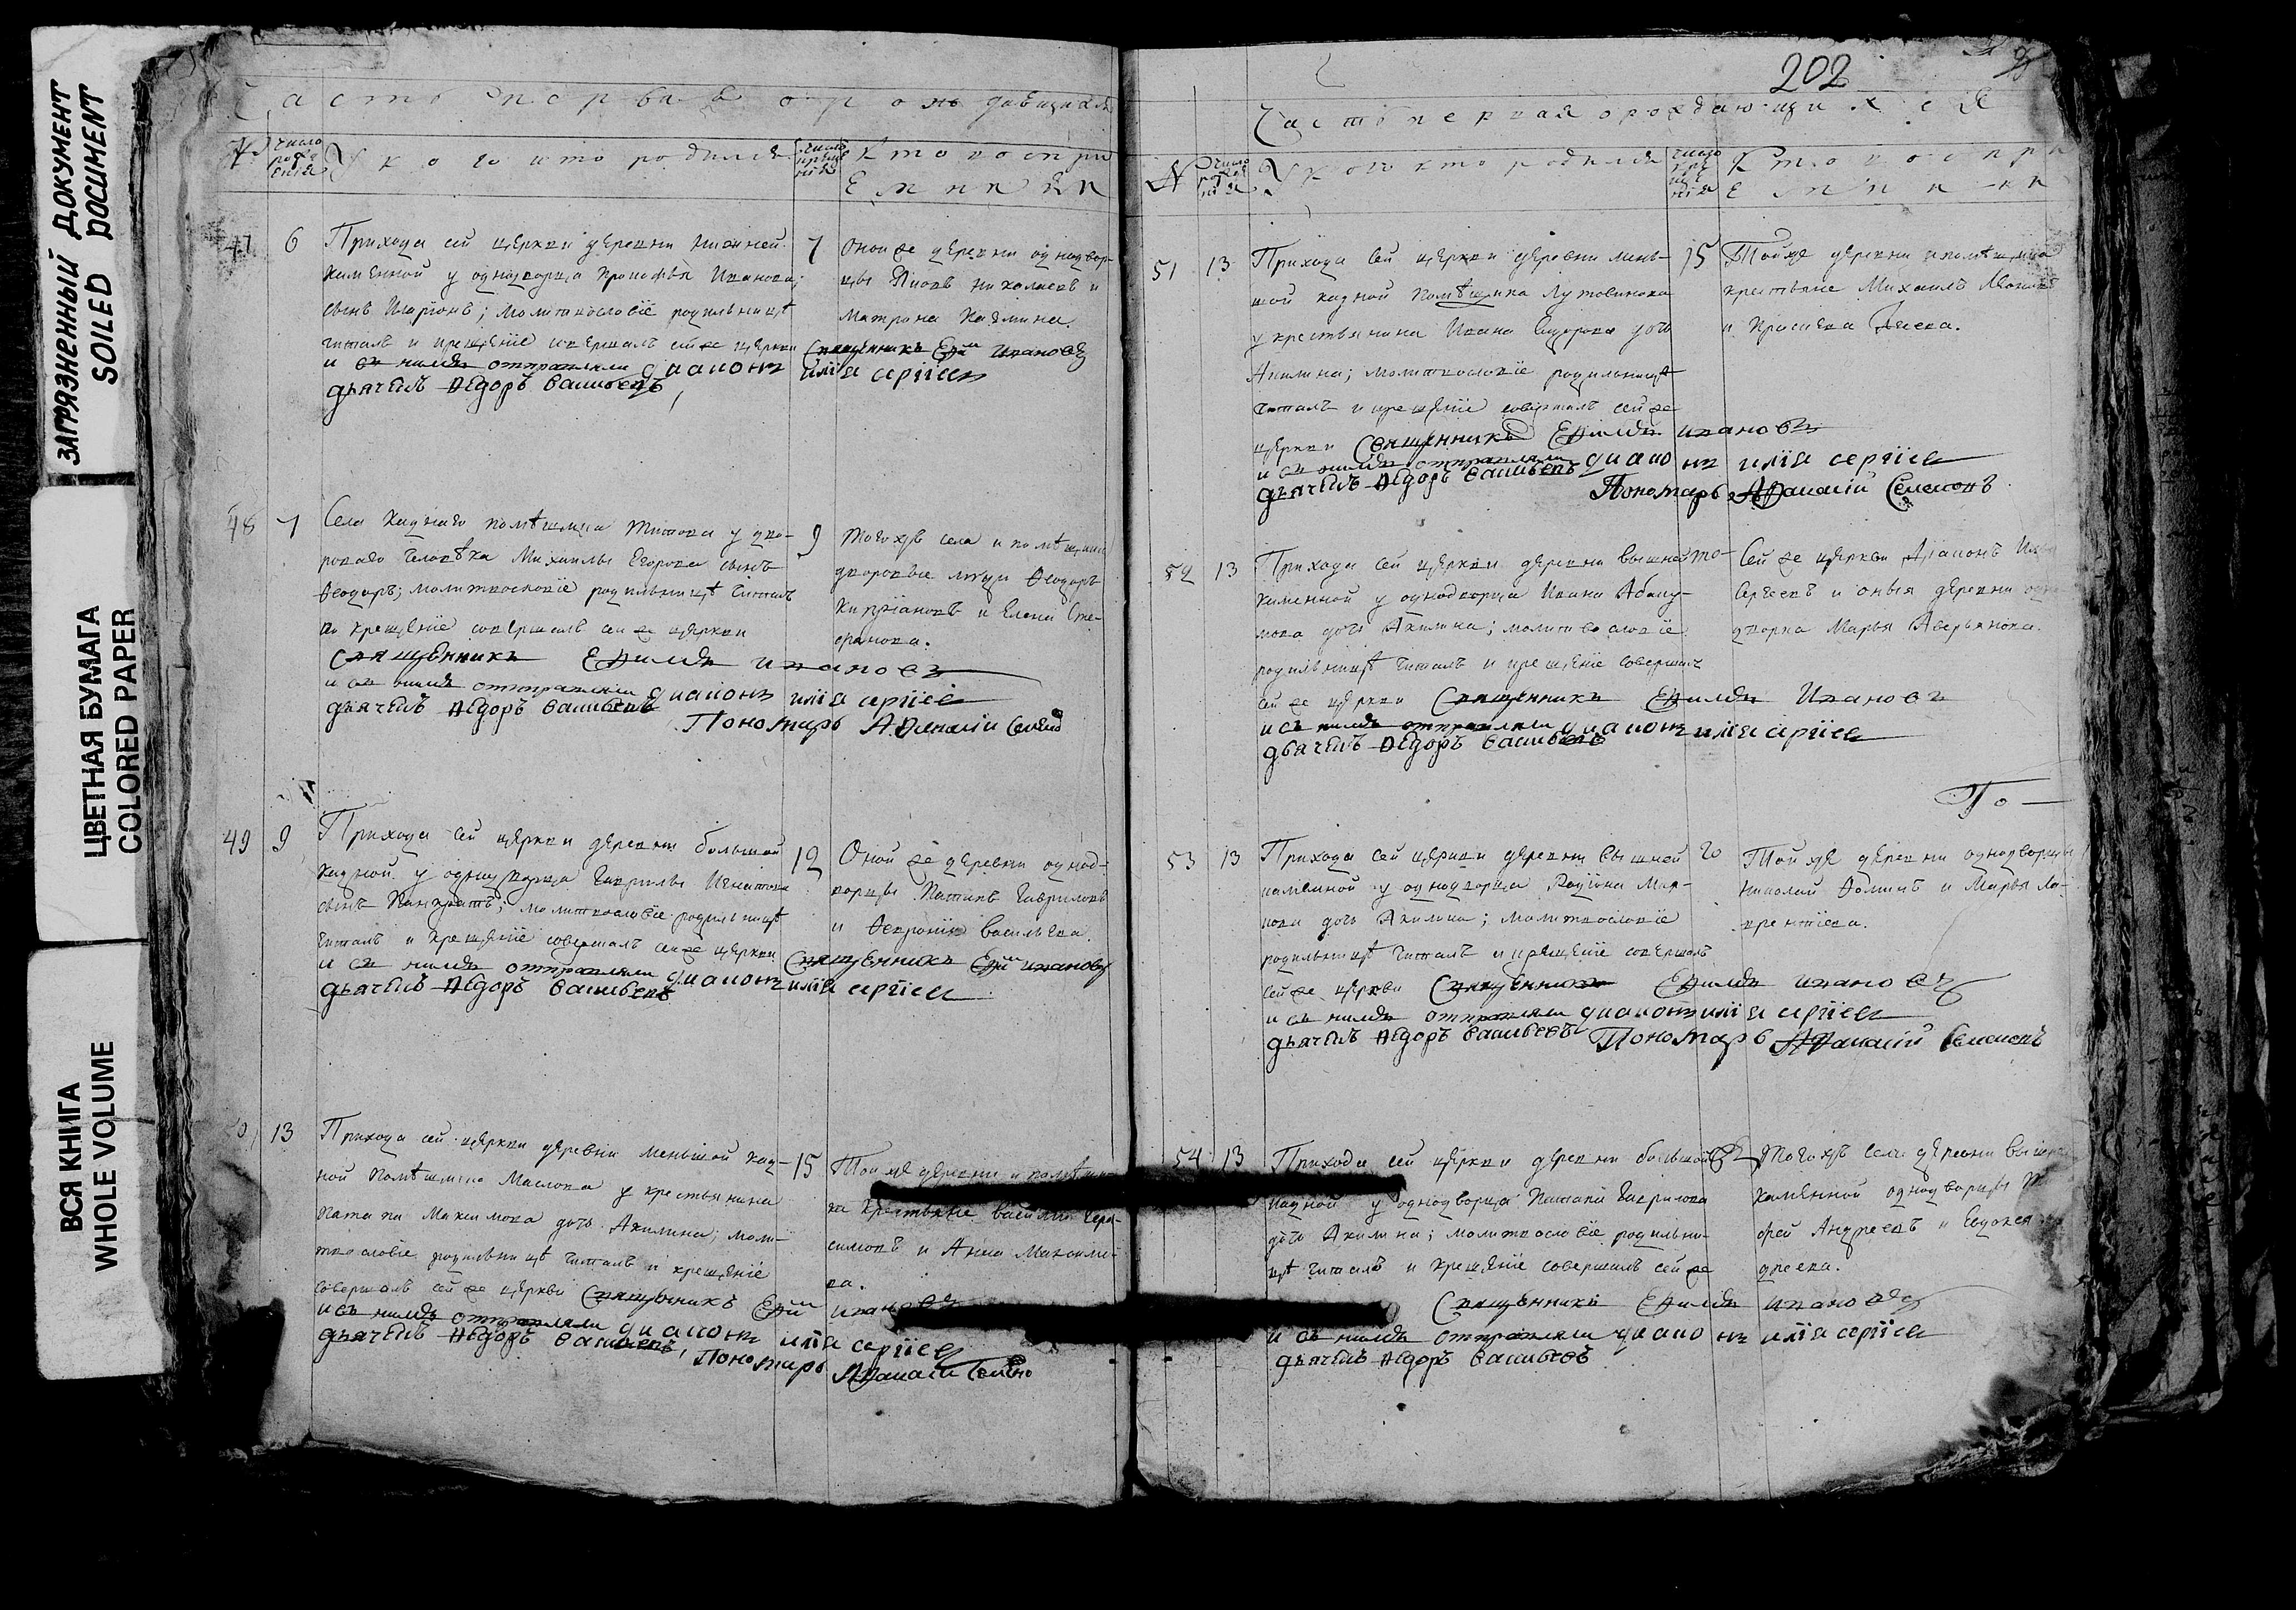 ЗАГРЯЗНЕННЫЙ ДОКУМЕНТ
SOILED DOCUMENT
ЦВЕТНАЯ БУМАГА
COLORED PAPER
ВСЯ КНИГА
WHOLE VOLUME
у кого кто родился
47 6 7
Прихода сей церкви деревни нижней
каменной у однодворца Иванова
сынъ Иларіонъ; молитвословіе родильницѣ
читалъ и крещеніе совершалъ сей же церкви
Священникъ Ефим Ивановъ
и съ нимъ отправляли диаконъ илія сергіев
дьячекъ Ѳедоръ Васильевъ
Оной же деревни однодвор-
цы николаевъ и
Матрона
48 7 9
Села Каднаго помѣщика Титова у дво-
роваго человѣка Михаилы Егорова сынъ
Ѳеодоръ; молитвословіе родильницѣ читалъ
и крещеніе совершалъ сей же церкви
Священникъ Ефимъ Ивановъ
и съ нимъ отправляли диаконъ илія сергіев
дьячекъ Ѳедоръ Васильевъ
Пономарь Афанасій
тогожъ села и помѣщика
дворовые люди Ѳеодоръ
Кипріановъ и Елена Сте-
фанова.
49 9 12
Прихода сей церкви деревни большой
Кадной у однодворца Гаврилы Игнатова
сынъ Панкратъ; молитвословіе родильницѣ
читалъ и крещеніе совершалъ сей же церкви
Священникъ Ефим Ивановъ
и съ нимъ отправляли диаконъ илія сергіев
дьячекъ Ѳедоръ Васильевъ
Оной же деревни однод-
ворцы Гавриловъ
и Ѳевронія Васильева.
13 15
Прихода сей церкви деревни меньшой кад-
ной помѣщика Маслова у крестьянина
Максимова дочь Акилина; моли-
твословіе родильницѣ читалъ и крещеніе
совершалъ сей же церкви Священникъ Ефим Ивановъ
и съ нимъ отправляли диаконъ илія сергіев
дьячекъ Ѳедоръ Васильевъ, Пономарь Афанасій
Той же деревни и помѣщи-
ка крестьяне Василій Гера-
симовъ и Анна Максимо-
ва.
202
Часть первая о рождающихся
у кого кто родился
51 13 15
Прихода сей церкви деревни мень-
шой кадной помѣщика Лутовинова
у крестьянина Ивана дочь
Акилина; молитвословіе родильницѣ
читалъ и крещеніе совершалъ сей же
церкви Священникъ Ефимъ Ивановъ
и съ нимъ отправляли диаконъ илія сергіев
дьячекъ Ѳедоръ Васильевъ
Пономарь Афанасій Семеновъ
Той же деревни и помѣщика
крестьяне Михаилъ
и
52 13
Прихода сей церкви деревни вышней
Каменной у однодворца Ивана Абаку-
мова дочь Акилина; молитвословіе
родильницѣ читалъ и крещеніе совершалъ
сей же церкви Священникъ Ефимъ Ивановъ
и съ нимъ отправляли диаконъ илія сергіев
дьячекъ Ѳедоръ Васильевъ
Сей же церкви Діаконъ
Сергеевъ и оныя деревни
дворка Марья Аверьянова.
53 13
Прихода сей церкви деревни вышней
каменной у однодворца Родіона Мар-
кова дочь Акилина; молитвословіе
родильницѣ читалъ и крещеніе совершалъ
сей же церкви Священникъ Ефимъ Ивановъ
и съ нимъ отправляли диаконъ илія сергіев
дьячекъ Ѳедоръ Васильевъ Пономарь Афанасій Семеновъ
Той же деревни однодворцы
Николай Ѳоминъ и Марья Ла-
врентіева.
54 13
Прихода сей церкви деревни большой
кадной у однодворца Гаврилова
дочь Акилина; молитвословіе родильни-
цѣ читалъ и крещеніе совершалъ сей же
Священникъ Ефимъ Ивановъ
и съ нимъ отправляли диаконъ илія сергіев
дьячекъ Ѳедоръ Васильевъ
Тогожъ села деревни
каменной однодворцы
фей Андреевъ и Евдокея
дреева.